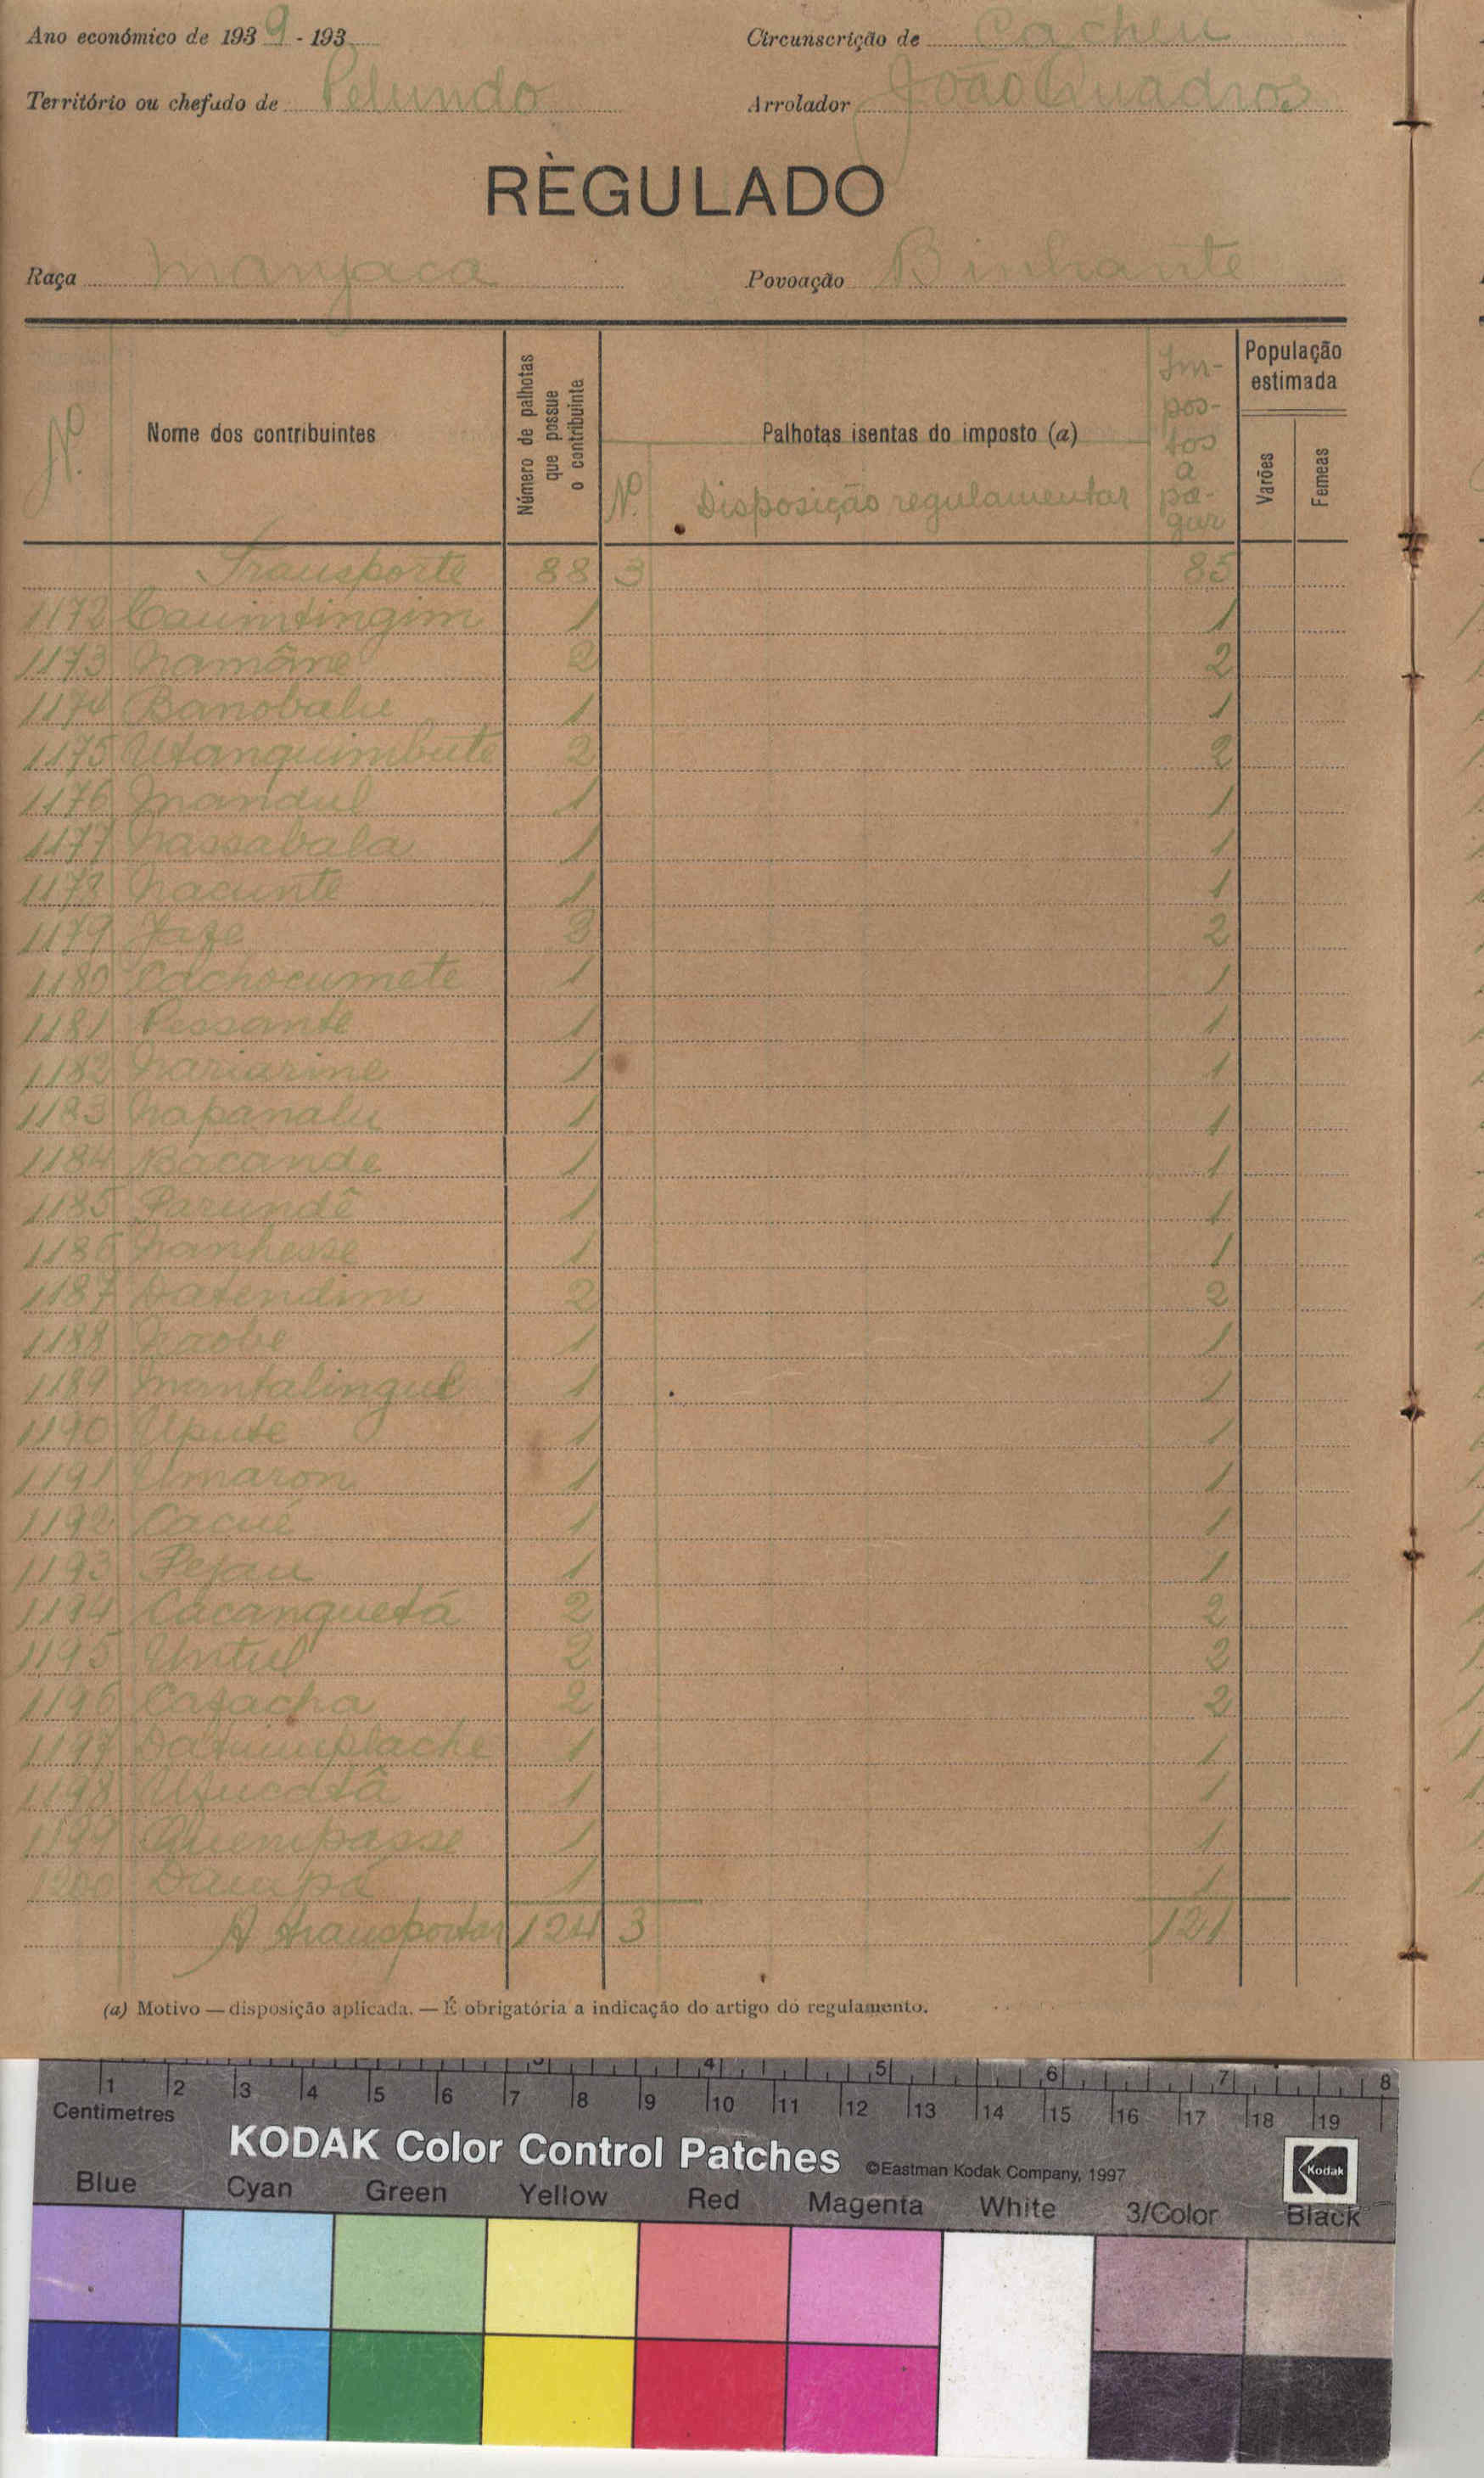 Ano económico de 1939 - 193
Circunscrição de Cacheu
Território ou chefado de Pelundo
Arrolador João Quadros
RÈGULADO
Raça Manjaca
Povoação Binhante
Nº
Nome dos contribuintes
Número de palhotas que possue o contribuinte
Palhotas isentas do imposto (a)
Nº. Disposição regulamentar
Im-
pos-
tos
a
pa-
gar
População estimada
Varões
Femeas
Transporte 88 3 85
1172 Cauintingim 1 1
1173 Namône 2 2
1174 Banobalu 1 1
1175 Utanquimbute 2 2
1176 Mandul 1 1
1177 Nassabala 1 1
1178 Nacunte 1 1
1179 3 2
1180 Cachocumete 1 1
1181 Pessante 1 1
1182 Nariarine 1 1
1183 Napanalu 1 1
1184 Bacande 1 1
1185 Parundê 1 1
1186 Nanhesse 1 1
1187 Datendim 2 2
1188 Naobe 1 1
1189 Mantalingul 1 1
1190 Upute 1 1
1191 Umaron 1 1
1192 Cacué 1 1
1193 Pejau 1 1
1194 Cacanguetá 2 2
1195 Untul 2 2
1196 Cafacha 2 2
1197 1 1
1198 1 1
1199 Quempasse 1 1
1200 1 1
A transportar 124 3 121
(a) Motivo — disposição aplicada. — É obrigatória a indicação do artigo do regulamento.
1 2 3 4 5 6 7 8 9 10 11 12 13 14 15 16 17 18 19
4 5 6 7 8
Centimetres
KODAK Color Control Patches ©Eastman Kodak Company, 1997
Kodak
Blue Cyan Green Yellow Red Magenta White 3/Color Black